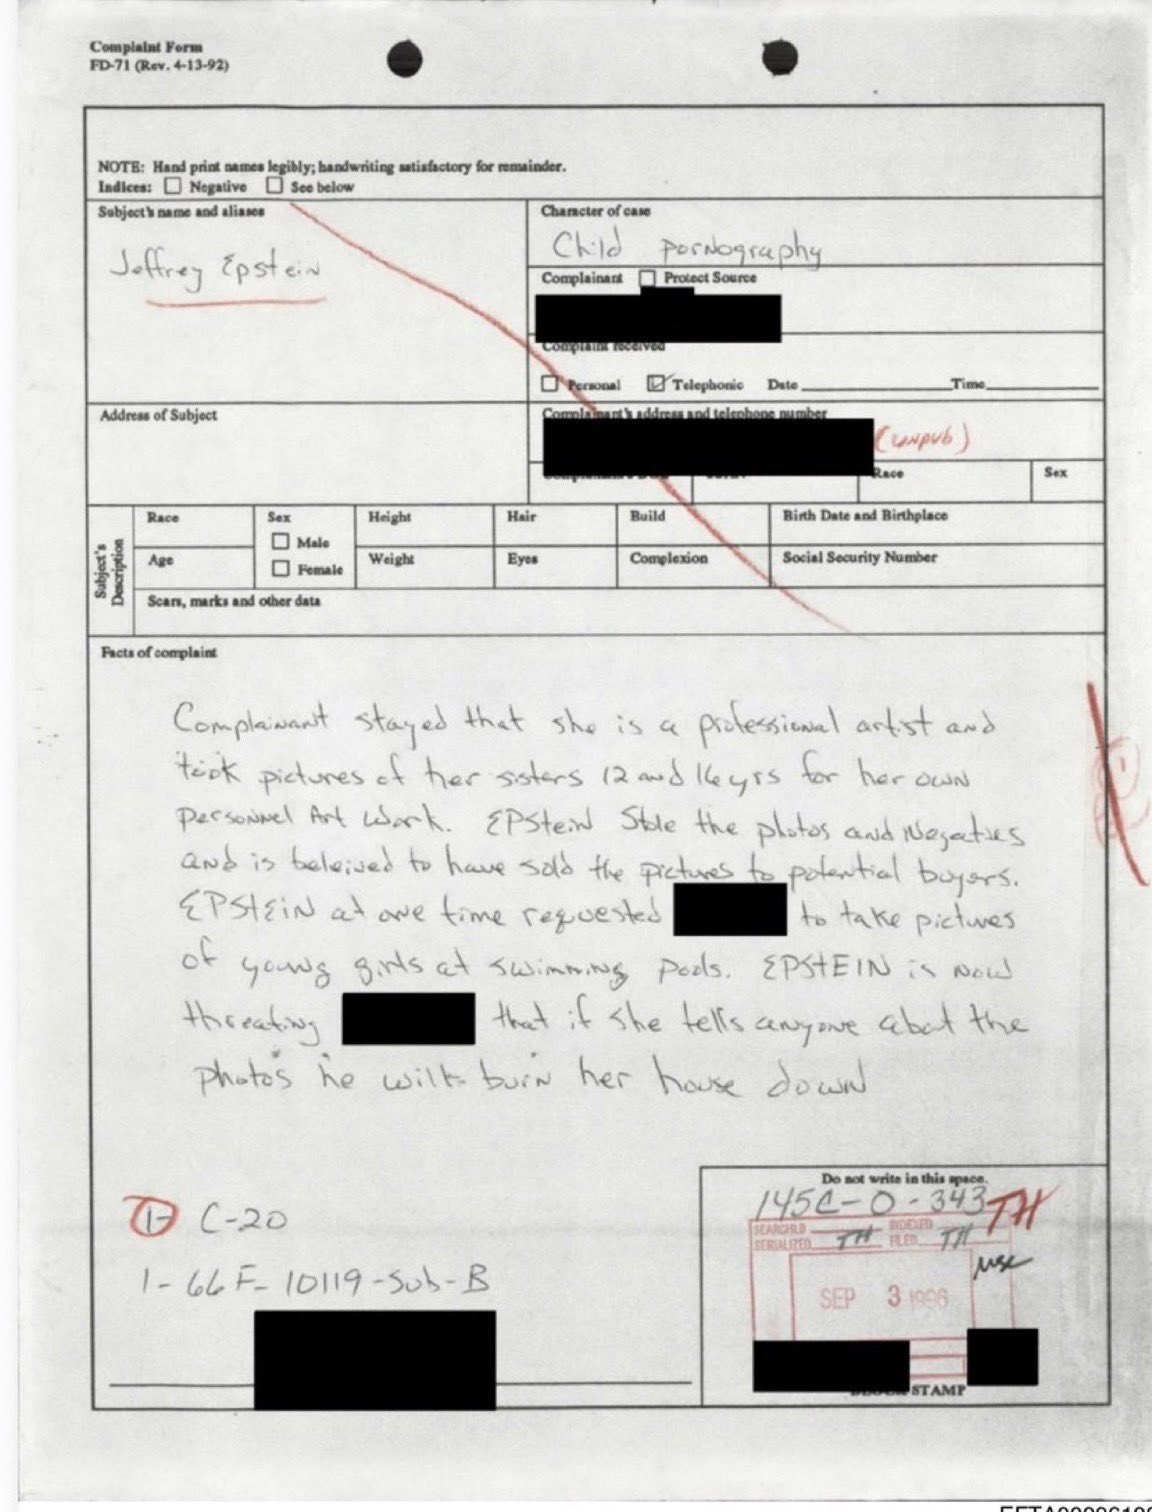 Complaint Form
FD-71 (Rev. 4-13-92)
NOTE: Hand print names legibly; handwriting satisfactory for remainder.
Indices: Negative See below
Subject's name and aliases
Jeffrey Epstein
Character of case
Child Pornography
Complainant Protect Source
Complaint received
Personal Telephonic Date Time
Address of Subject
Complainant's address and telephone number
(unpub)
Race Sex
Subject's Description
Race Sex Height Hair Build Birth Date and Birthplace
Male
Age Weight Eyes Complexion Social Security Number
Female
Scars, marks and other data
Facts of complaint
Complainant stayed that she is a professional artist and
took pictures of her sisters 12 and 16 yrs for her own
Personnel Art Work. EPStein Stole the photos and Negaties
and is beleived to have sold the pictures to potential buyers.
EPStEiN at one time requested to take pictures
of young girls at swimming pools. EPStEIN is now
threating that if she tells anyone abot the
photos he will burn her house down
1- C-20
1- 66F-10119-Sub-B
Do not write in this space.
145C-0-343
TH
SEARCHED INDEXED
SERIALIZED TH FILED TH
SEP 3 1996
STAMP